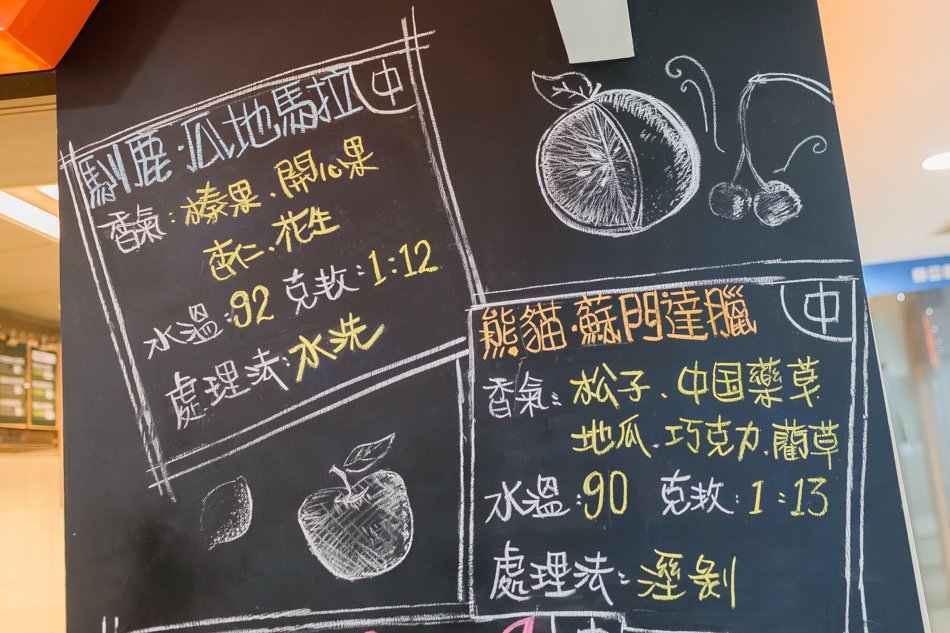 中
馴鹿·瓜地馬拉
香氣:榛果、開心果
杏仁、花生
水溫:92 克数:1:12
處理法:水洗
中
熊貓·蘇門達臘
香氣:松子、中国藥草
地瓜、巧克力、蘭草
水溫:90 克数:1:13
處理法:溼剝